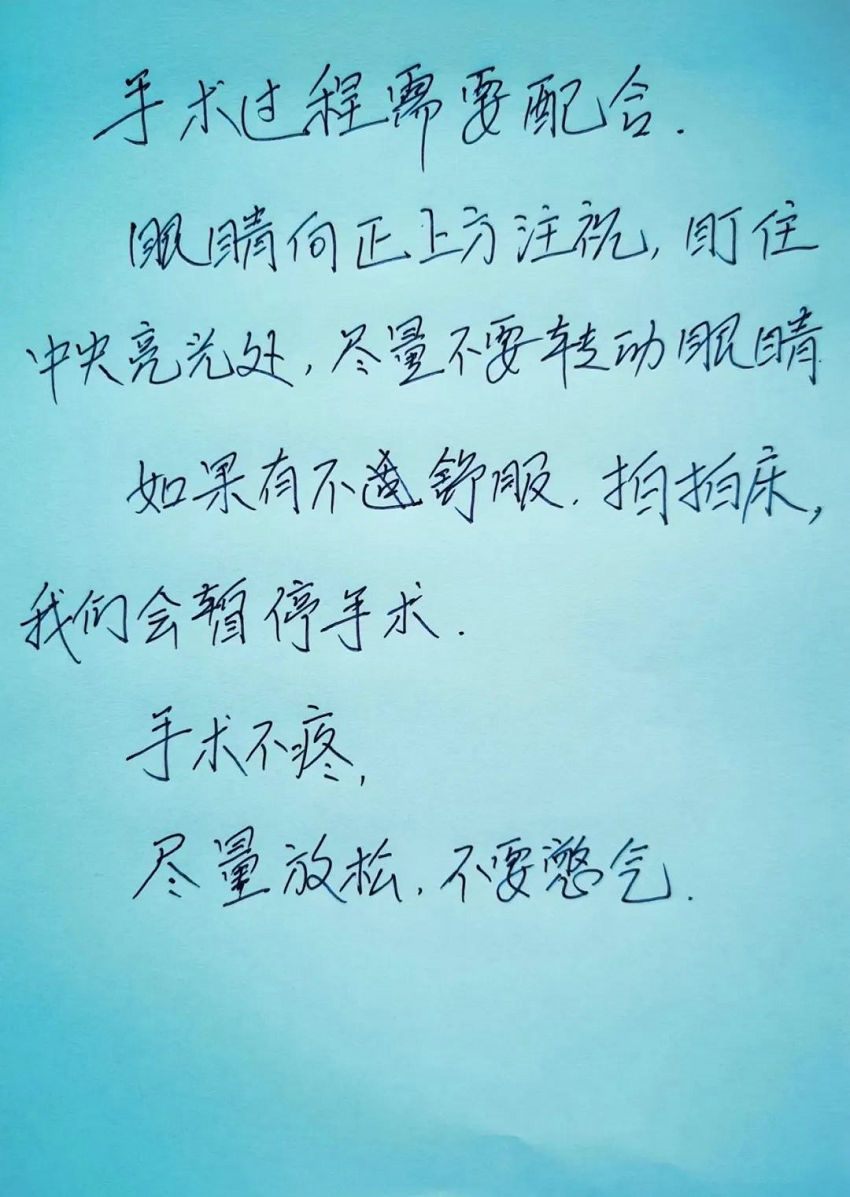 手术过程需要配合.
眼睛向正上方注视,盯住
中央亮光处,尽量不要转动眼睛
如果有不适舒服.拍拍床,
我们会暂停手术.
手术不疼,
尽量放松.不要憋气.